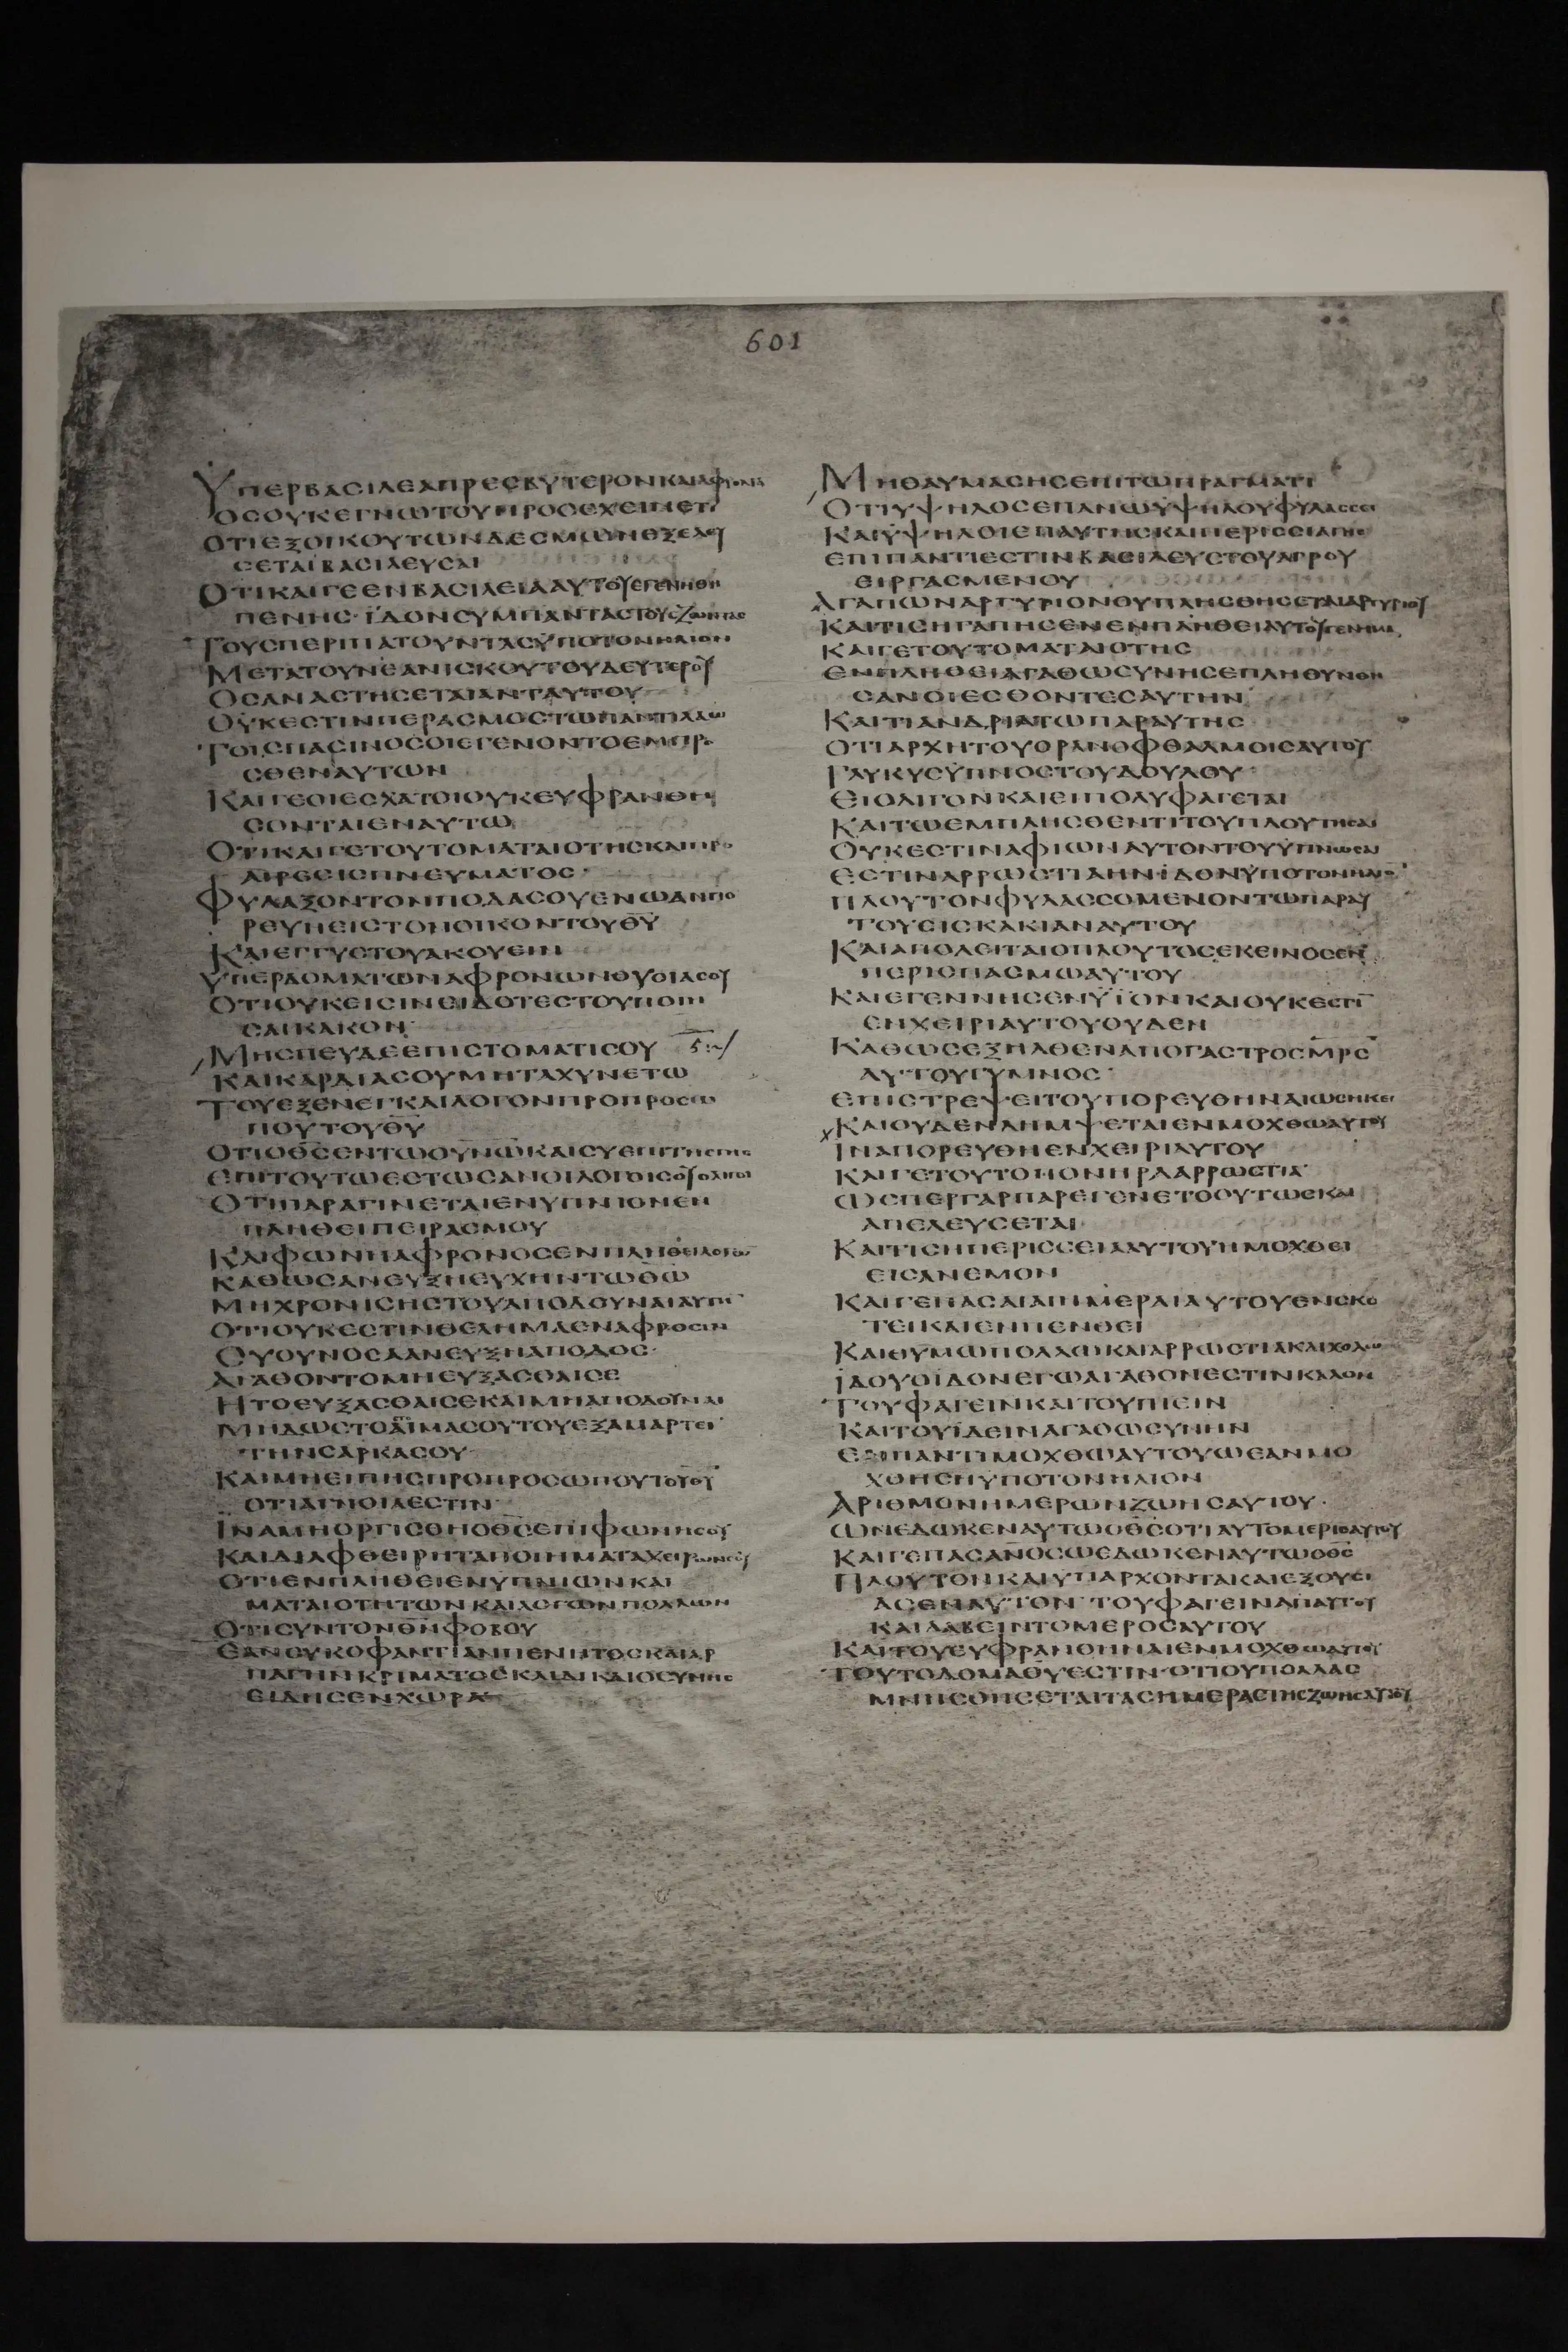 601
ΥΠΕΡΒΑϹΙΛΕΑΠΡΕϹΒΥΤΕΡΟΝΚΑΙΑΦΡΟΝΑ
ΟϹΟΥΚΕΓΝΩΤΟΥΠΡΟϹΕΧΕΙΝΕΤΙ
ΟΤΙΕΞΟΙΚΟΥΤΩΝΔΕϹΜΩΝΕΞΕΛΕΥ
ϹΕΤΑΙΒΑϹΙΛΕΥϹΑΙ
ΟΤΙΚΑΙΓΕΕΝΒΑϹΙΛΕΙΑΑΥΤΟΥΕΓΕΝΗΘΗ
ΠΕΝΗϹ·ΪΔΟΝϹΥΜΠΑΝΤΑϹΤΟΥϹΖΩΝΤΑϹ
ΤΟΥϹΠΕΡΙΠΑΤΟΥΝΤΑϹΫΠΟΤΟΝΗΛΙΟΝ
ΜΕΤΑΤΟΥΝΕΑΝΙϹΚΟΥΤΟΥΔΕΥΤΕΡΟΥ
ΟϹΑΝΑϹΤΗϹΕΤΑΙΑΝΤΑΥΤΟΥ
ΟΥΚΕϹΤΙΝΠΕΡΑϹΜΟϹΤΩΠΑΝΤΙΛΑΩ
ΤΟΙϹΠΑϹΙΝΟϹΟΙΕΓΕΝΟΝΤΟΕΜΠΡΟ
ϹΘΕΝΑΥΤΩΝ
ΚΑΙΓΕΟΙΕϹΧΑΤΟΙΟΥΚΕΥΦΡΑΝΘΗ
ϹΟΝΤΑΙΕΝΑΥΤΩ
ΟΤΙΚΑΙΓΕΤΟΥΤΟΜΑΤΑΙΟΤΗϹΚΑΙΠΡΟ
ΑΙΡΕϹΙϹΠΝΕΥΜΑΤΟϹ·
ΦΥΛΑΞΟΝΤΟΝΠΟΔΑϹΟΥΕΝΩΑΝΠΟ
ΡΕΥΗΕΙϹΤΟΝΟΙΚΟΝΤΟΥΘΥ
ΚΑΙΕΓΓΥϹΤΟΥΑΚΟΥΕΙΝ
ΥΠΕΡΔΟΜΑΤΩΝΑΦΡΟΝΩΝΘΥϹΙΑϹΟΥ
ΟΤΙΟΥΚΕΙϹΙΝΕΙΔΟΤΕϹΤΟΥΠΟΙΗ
ϹΑΙΚΑΚΟΝ
ΜΗϹΠΕΥΔΕΕΠΙϹΤΟΜΑΤΙϹΟΥ
ΚΑΙΚΑΡΔΙΑϹΟΥΜΗΤΑΧΥΝΕΤΩ
ΤΟΥΕΞΕΝΕΓΚΑΙΛΟΓΟΝΠΡΟΠΡΟϹΩ
ΠΟΥΤΟΥΘΥ
ΟΤΙΟΘϹΕΝΤΩΟΥΝΩΚΑΙϹΥΕΠΙΤΗϹΓΗϹ
ΕΠΙΤΟΥΤΩΕϹΤΩϹΑΝΟΙΛΟΓΟΙϹΟΥΟΛΙΓΟΙ
ΟΤΙΠΑΡΑΓΙΝΕΤΑΙΕΝΥΠΝΙΟΝΕΝ
ΠΛΗΘΕΙΠΕΙΡΑϹΜΟΥ
ΚΑΙΦΩΝΗΑΦΡΟΝΟϹΕΝΠΛΗΘΕΙΛΟΓΩΝ
ΚΑΘΩϹΑΝΕΥΞΗΕΥΧΗΝΤΩΘΩ
ΜΗΧΡΟΝΙϹΗϹΤΟΥΑΠΟΔΟΥΝΑΙΑΥΤΗΝ
ΟΤΙΟΥΚΕϹΤΙΝΘΕΛΗΜΑΕΝΑΦΡΟϹΙΝ
ϹΥΟΥΝΟϹΑΑΝΕΥΞΗΑΠΟΔΟϹ·
ΑΓΑΘΟΝΤΟΜΗΕΥΞΑϹΘΑΙϹΕ
ΗΤΟΕΥΞΑϹΘΑΙϹΕΚΑΙΜΗΑΠΟΔΟΥΝΑΙ
ΜΗΔΩϹΤΟϹΤΟΜΑϹΟΥΤΟΥΕΞΑΜΑΡΤΕΙ
ΤΗΝϹΑΡΚΑϹΟΥ
ΚΑΙΜΗΕΙΠΗϹΠΡΟΠΡΟϹΩΠΟΥΤΟΥΘΥ
ΟΤΙΑΓΝΟΙΑΕϹΤΙΝ
ΙΝΑΜΗΟΡΓΙϹΘΗΟΘϹΕΠΙΦΩΝΗϹΟΥ
ΚΑΙΔΙΑΦΘΕΙΡΗΤΑΠΟΙΗΜΑΤΑΧΕΙΡΩΝϹΟΥ
ΟΤΙΕΝΠΛΗΘΕΙΕΝΥΠΝΙΩΝΚΑΙ
ΜΑΤΑΙΟΤΗΤΩΝΚΑΙΛΟΓΩΝΠΟΛΛΩΝ
ΟΤΙϹΥΝΤΟΝΘΝΦΟΒΟΥ
ΕΑΝϹΥΚΟΦΑΝΤΙΑΝΠΕΝΗΤΟϹΚΑΙΑΡ
ΠΑΓΗΝΚΡΙΜΑΤΟϹΚΑΙΔΙΚΑΙΟϹΥΝΗϹ
ΕΙΔΗϹΕΝΧΩΡΑ
ΜΗΘΑΥΜΑϹΗϹΕΠΙΤΩΠΡΑΓΜΑΤΙ
ΟΤΙΥΨΗΛΟϹΕΠΑΝΩΫΨΗΛΟΥΦΥΛΑϹϹΕΙ
ΚΑΙΫΨΗΛΟΙΕΠΑΥΤΗϹΚΑΙΠΕΡΙϹϹΕΙΑΓΗϹ
ΕΠΙΠΑΝΤΙΕϹΤΙΝΒΑϹΙΛΕΥϹΤΟΥΑΓΡΟΥ
ΕΙΡΓΑϹΜΕΝΟΥ
ΑΓΑΠΩΝΑΡΓΥΡΙΟΝΟΥΠΛΗϹΘΗϹΕΤΑΙΑΡΓΥΡΙΟΥ
ΚΑΙΤΙϹΗΓΑΠΗϹΕΝΕΝΠΛΗΘΕΙΑΥΤΟΥΓΕΝΗΜΑ
ΚΑΙΓΕΤΟΥΤΟΜΑΤΑΙΟΤΗϹ
ΕΝΠΛΗΘΕΙΑΓΑΘΩϹΥΝΗϹΕΠΛΗΘΥΝΘΗ
ϹΑΝΟΙΕϹΘΟΝΤΕϹΑΥΤΗΝ
ΚΑΙΤΙΑΝΔΡΙΑΤΩΠΑΡΑΥΤΗϹ
ΟΤΙΑΡΧΗΤΟΥΟΡΑΝΟΦΘΑΛΜΟΙϹΑΥΤΟΥ
ΓΛΥΚΥϹΫΠΝΟϹΤΟΥΔΟΥΛΟΥ
ΕΙΟΛΙΓΟΝΚΑΙΕΙΠΟΛΥΦΑΓΕΤΑΙ
ΚΑΙΤΩΕΜΠΛΗϹΘΕΝΤΙΤΟΥΠΛΟΥΤΗϹΑΙ
ΟΥΚΕϹΤΙΝΑΦΙΩΝΑΥΤΟΝΤΟΥΫΠΝΩϹΑΙ
ΕϹΤΙΝΑΡΡΩϹΤΙΑΗΝΪΔΟΝΫΠΟΤΟΝΗΛΙΟ
ΠΛΟΥΤΟΝΦΥΛΑϹϹΟΜΕΝΟΝΤΩΠΑΡΑΥ
ΤΟΥΕΙϹΚΑΚΙΑΝΑΥΤΟΥ
ΚΑΙΑΠΟΛΕΙΤΑΙΟΠΛΟΥΤΟϹΕΚΕΙΝΟϹΕΝ
ΠΕΡΙϹΠΑϹΜΩΑΥΤΟΥ
ΚΑΙΕΓΕΝΝΗϹΕΝΫΪΟΝΚΑΙΟΥΚΕϹΤΙ
ΕΝΧΕΙΡΙΑΥΤΟΥΟΥΔΕΝ
ΚΑΘΩϹΕΞΗΛΘΕΝΑΠΟΓΑϹΤΡΟϹΜΡϹ
ΑΥΤΟΥΓΥΜΝΟϹ·
ΕΠΙϹΤΡΕΨΕΙΤΟΥΠΟΡΕΥΘΗΝΑΙΩϹΗΚΕΙ
ΚΑΙΟΥΔΕΝΛΗΜΨΕΤΑΙΕΝΜΟΧΘΩΑΥΤΟΥ
ΙΝΑΠΟΡΕΥΘΗΕΝΧΕΙΡΙΑΥΤΟΥ
ΚΑΙΓΕΤΟΥΤΟΠΟΝΗΡΑΑΡΡΩϹΤΙΑ
ΩϹΠΕΡΓΑΡΠΑΡΕΓΕΝΕΤΟΟΥΤΩϹΚΑΙ
ΑΠΕΛΕΥϹΕΤΑΙ
ΚΑΙΤΙϹΗΠΕΡΙϹϹΕΙΑΑΥΤΟΥΗΜΟΧΘΕΙ
ΕΙϹΑΝΕΜΟΝ
ΚΑΙΓΕΠΑϹΑΙΑΙΗΜΕΡΑΙΑΥΤΟΥΕΝϹΚΟ
ΤΕΙΚΑΙΕΝΠΕΝΘΕΙ
ΚΑΙΘΥΜΩΠΟΛΛΩΚΑΙΑΡΡΩϹΤΙΑΚΑΙΧΟΛΩ
ΙΔΟΥΟΪΔΟΝΕΓΩΑΓΑΘΟΝΕϹΤΙΝΚΑΛΟΝ
ΤΟΥΦΑΓΕΙΝΚΑΙΤΟΥΠΙΕΙΝ
ΚΑΙΤΟΥΪΔΕΙΝΑΓΑΘΩϹΥΝΗΝ
ΕΝΠΑΝΤΙΜΟΧΘΩΑΥΤΟΥΩΕΑΝΜΟ
ΧΘΗϹΗΫΠΟΤΟΝΗΛΙΟΝ
ΑΡΙΘΜΟΝΗΜΕΡΩΝΖΩΗϹΑΥΤΟΥ·
ΩΝΕΔΩΚΕΝΑΥΤΩΟΘϹΟΤΙΑΥΤΟΜΕΡΙϹΑΥΤΟΥ
ΚΑΙΓΕΠΑϹΑΝΟϹΩΕΔΩΚΕΝΑΥΤΩΟΘϹ
ΠΛΟΥΤΟΝΚΑΙΥΠΑΡΧΟΝΤΑΚΑΙΕΞΟΥϹΙ
ΑϹΕΝΑΥΤΟΝΤΟΥΦΑΓΕΙΝΑΠΑΥΤΟΥ
ΚΑΙΛΑΒΕΙΝΤΟΜΕΡΟϹΑΥΤΟΥ
ΚΑΙΤΟΥΕΥΦΡΑΝΘΗΝΑΙΕΝΜΟΧΘΩΑΥΤΟΥ
ΤΟΥΤΟΔΟΜΑΘΥΕϹΤΙΝ·ΟΤΙΟΥΠΟΛΛΑϹ
ΜΝΗϹΘΗϹΕΤΑΙΤΑϹΗΜΕΡΑϹΤΗϹΖΩΗϹΑΥΤΟΥ